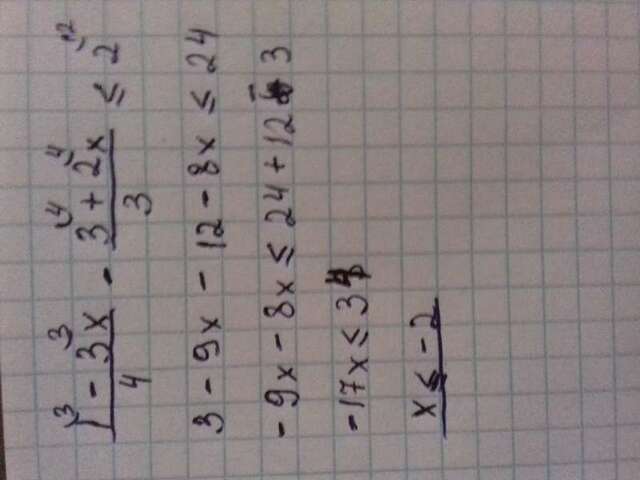 (1 - 3x)/4 - (3 + 2x)/3 ≤ 2
3 - 9x - 12 - 8x ≤ 24
- 9x - 8x ≤ 24 + 12 - 3
-17x ≤ 34
x ≤ -2